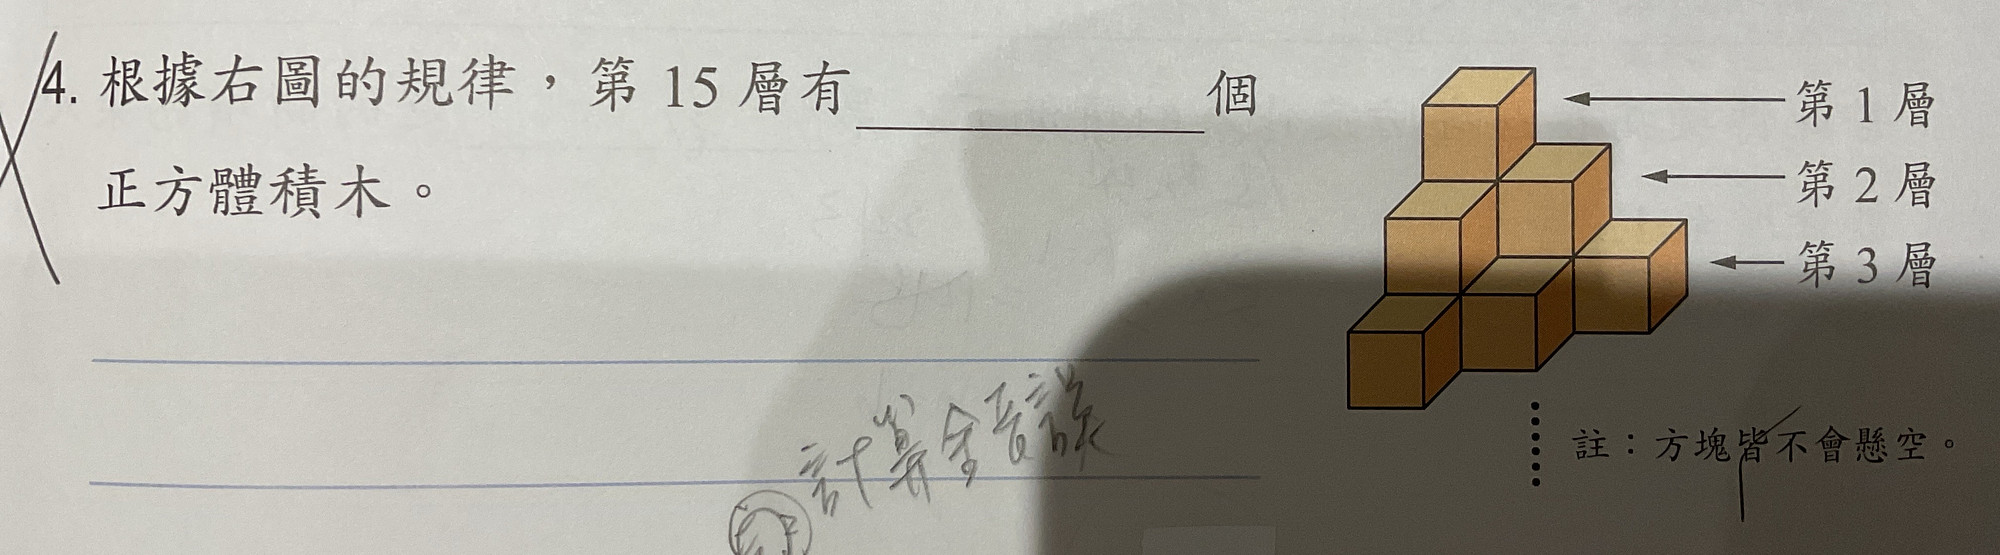 4. 根據右圖的規律，第 15 層有 個
正方體積木。
第 1 層
第 2 層
第 3 層
註：方塊皆不會懸空。
計算錯誤